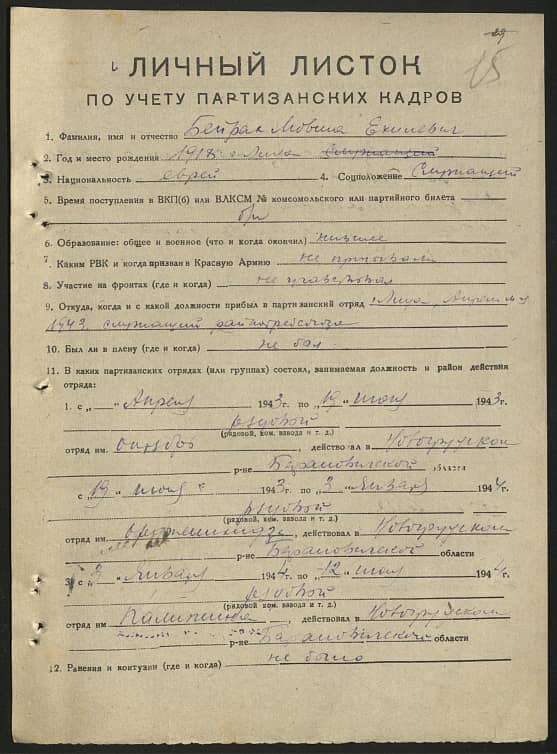 29
15
ЛИЧНЫЙ ЛИСТОК
ПО УЧЕТУ ПАРТИЗАНСКИХ КАДРОВ
1. Фамилия, имя и отчество Бейрак Мовша
2. Год и место рождения 1918 г. Лида служащий
3. Национальность еврей 4. Соцположение Служащий
5. Время поступления в ВКП(б) или ВЛКСМ № комсомольского или партийного билета
б/п
6. Образование: общее и военное (что и когда окончил) низшее
7. Каким РВК и когда призван в Красную Армию не призывали
8. Участие на фронтах (где и когда) не участвовал
9. Откуда, когда и с какой должности прибыл в партизанский отряд г. Лида,
1943. служащий
10. Был ли в плену (где и когда) не был
11. В каких партизанских отрядах (или группах) состоял, занимаемая должность и район действия
отряда:
1. с „ “ Апреля 1943г. по „19“ июля 1943г.
рядовой
(рядовой, ком. взвода и т. д.)
отряд им. Октябрь, действовал в Новогрудском
р-не Барановичской области
с „19“ июля 1943г. по „3“ Января 1944г.
рядовой
(рядовой, ком. взвода и т. д.)
отряд им. Орджоникидзе, действовал в Новогрудском
р-не Барановичской области
3. с „3“ Января 1944г. по „12“ июля 1944г.
рядовой
(рядовой, ком. взвода и т. д.)
отряд им Калинина, действовал в Новогрудском
р-не Барановичской области
12. Ранения и контузии (где и когда) не было